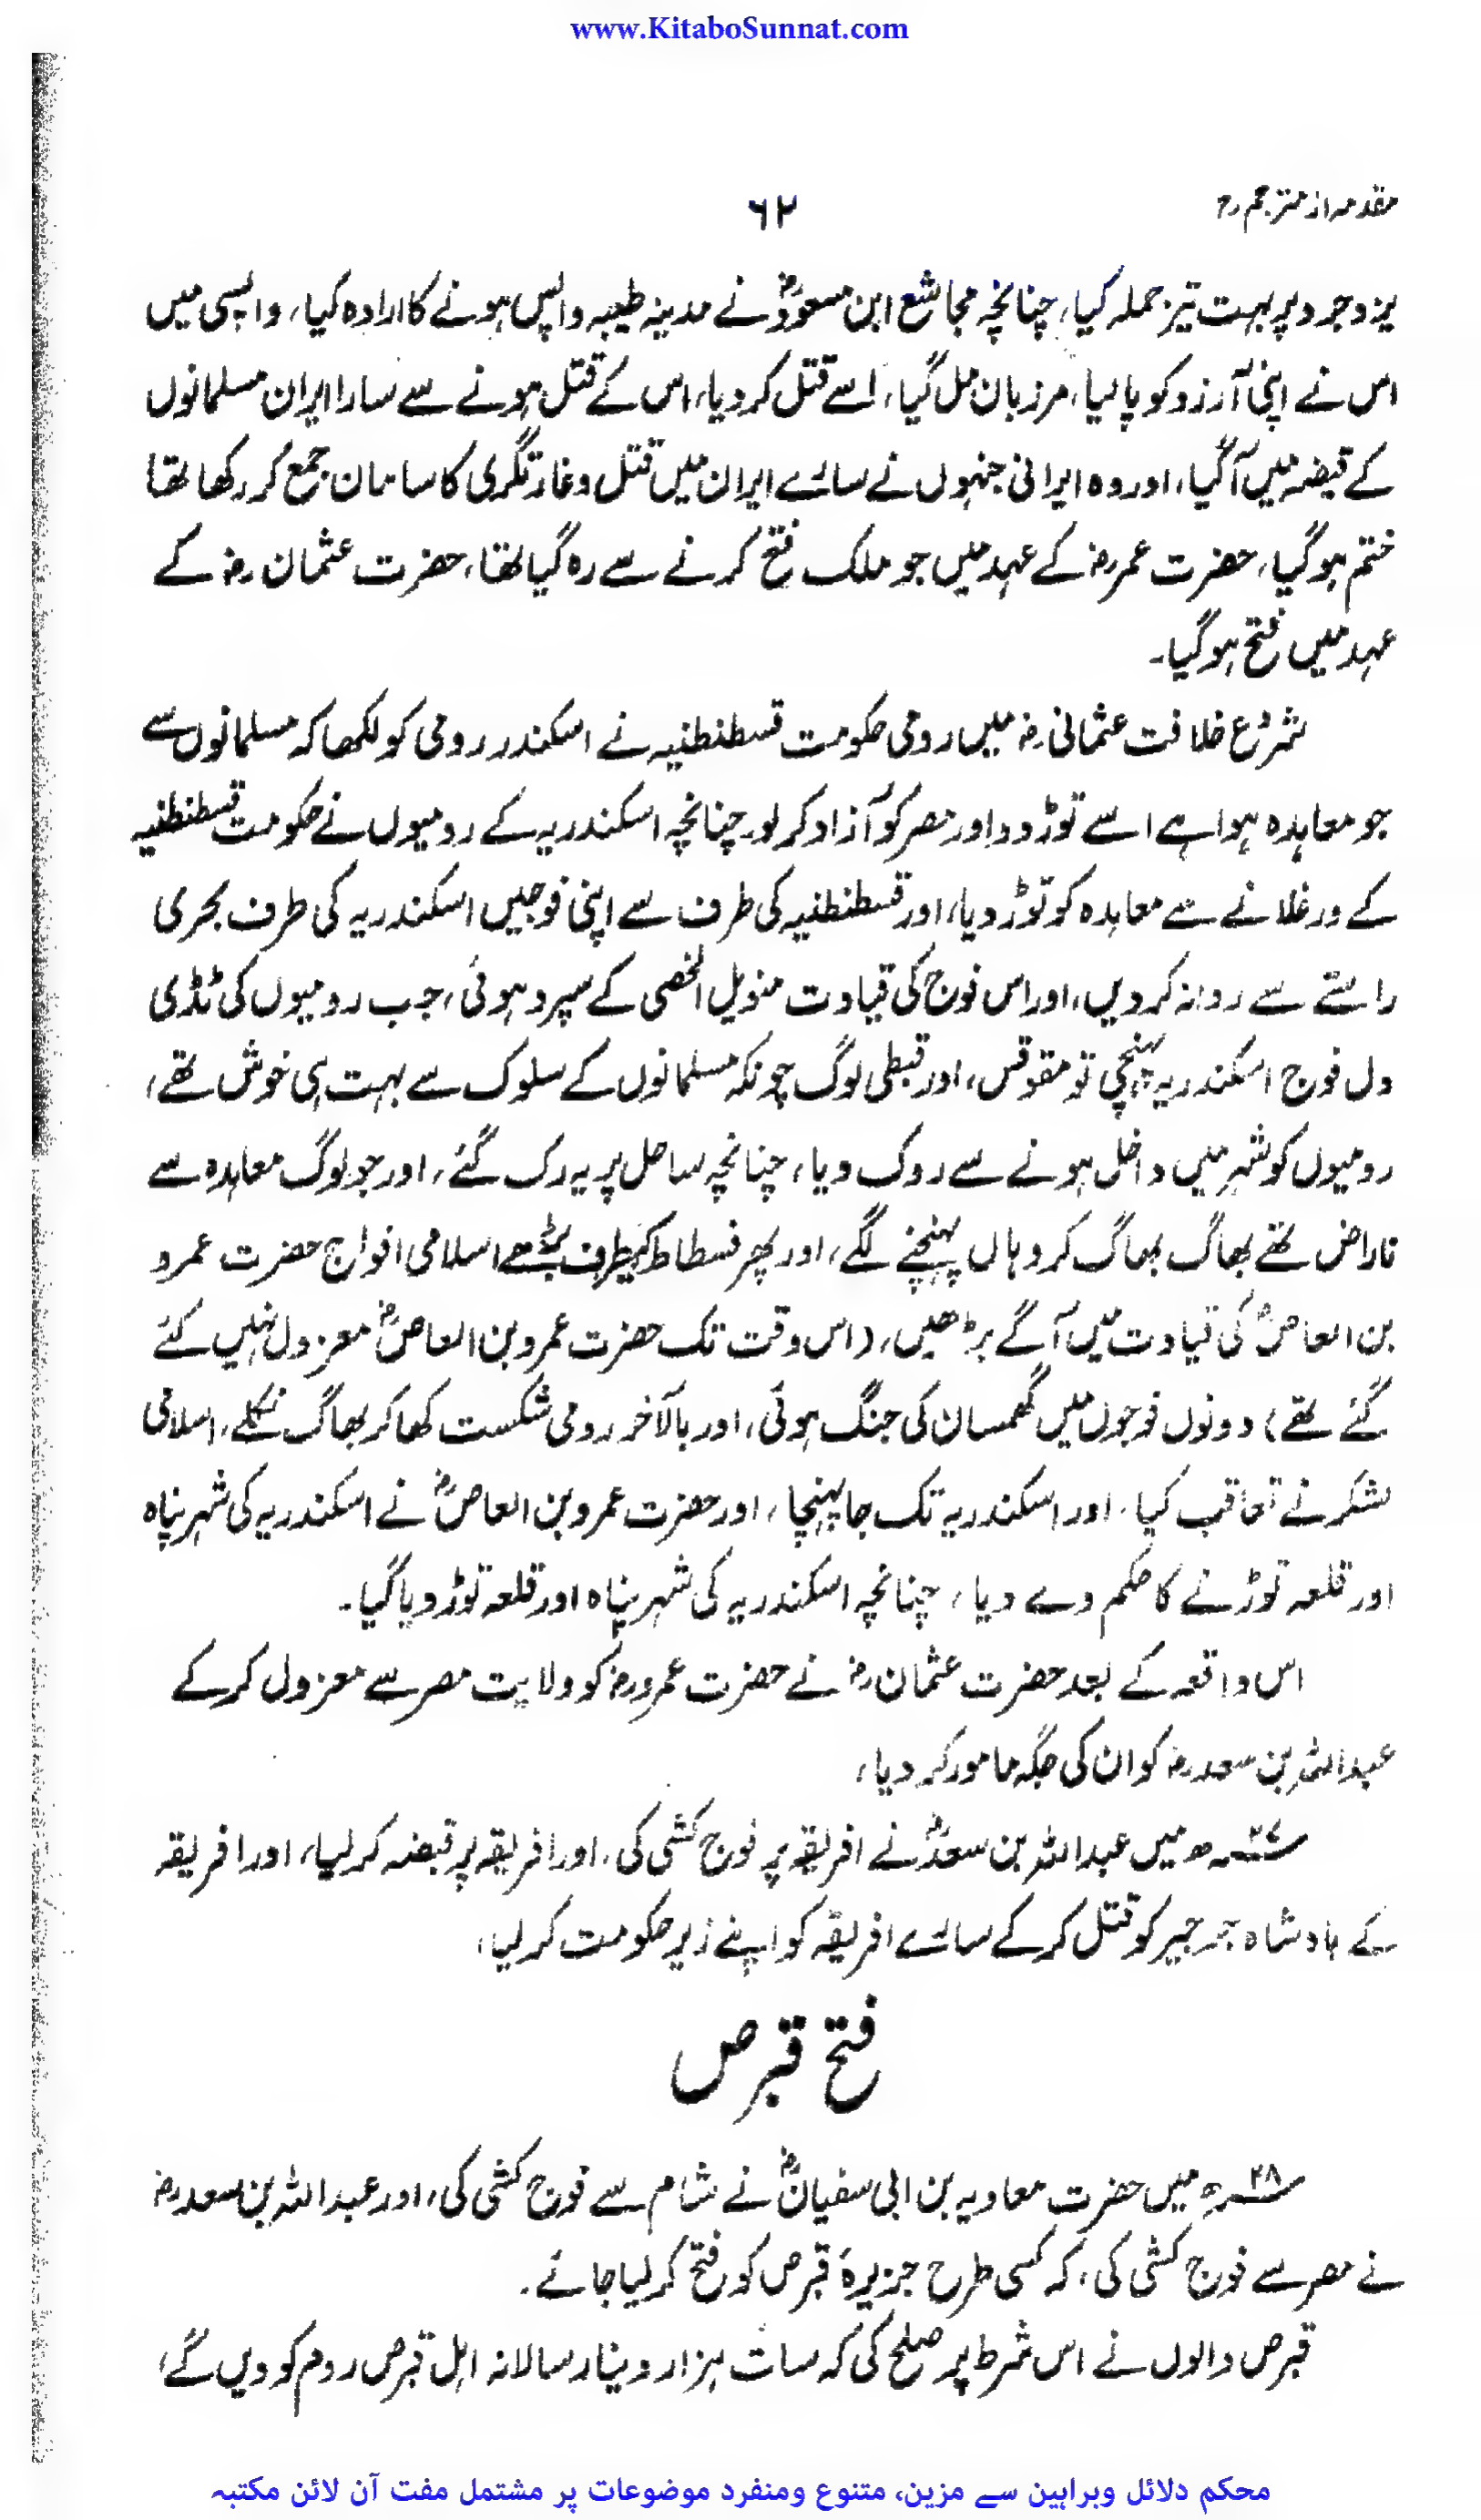 www.KitaboSunnat.com
مقدمہ از مترجم رح
۶۲
یزدوجرد پر بہت تیز حملہ کیا، چنانچہ مجاشع ابن مسعودؓ نے مدینہ طیبہ واپس ہونے کا ارادہ کیا، واپسی میں
اس نے اپنی آرزو کو پا لیا، مرزبان مل گیا، اسے قتل کر دیا، اس کے قتل ہونے سے سارا ایران مسلمانوں
کے قبضہ میں آگیا، اور وہ ایرانی جنہوں نے سارے ایران میں قتل و غارتگری کا سامان جمع کر رکھا تھا
ختم ہو گیا، حضرت عمر رضؓ کے عہد میں جو ملک فتح کرنے سے رہ گیا تھا، حضرت عثمان رضؓ کے
عہد میں فتح ہو گیا۔
شروع خلافت عثمانی رضؓ میں رومی حکومت قسطنطنیہ نے اسکندر رومی کو لکھا کہ مسلمانوں سے
جو معاہدہ ہوا ہے اسے توڑ دو اور مصر کو آزاد کر لو۔ چنانچہ اسکندریہ کے رومیوں نے حکومت قسطنطنیہ
کے ورغلانے سے معاہدہ کو توڑ دیا، اور قسطنطنیہ کی طرف سے اپنی فوجیں اسکندریہ کی طرف بحری
راستے سے روانہ کر دیں، اور اس فوج کی قیادت منویل الخصی کے سپرد ہوئی، جب رومیوں کی ٹڈی
دل فوج اسکندریہ پہنچی تو مقوقس، اور قبطی لوگ چونکہ مسلمانوں کے سلوک سے بہت ہی خوش تھے،
رومیوں کو شہر میں داخل ہونے سے روک دیا، چنانچہ ساحل پر یہ رک گئے، اور جو لوگ معاہدہ سے
ناراض تھے بھاگ بھاگ کر وہاں پہنچنے لگے، اور پھر فسطاط کیطرف بڑھے اسلامی افواج حضرت عمرو
بن العاصؓ کی قیادت میں آگے بڑھیں، (اس وقت تک حضرت عمرو بن العاصؓ معزول نہیں کئے
گئے تھے) دونوں فوجوں میں گھمسان کی جنگ ہوئی، اور بالآخر رومی شکست کھا کر بھاگ نکلے، اسلامی
لشکر نے تعاقب کیا، اور اسکندریہ تک جا پہنچا، اور حضرت عمرو بن العاصؓ نے اسکندریہ کی شہر پناہ
اور قلعہ توڑنے کا حکم دے دیا، چنانچہ اسکندریہ کی شہر پناہ اور قلعہ توڑ دیا گیا۔
اس واقعہ کے بعد حضرت عثمان رضؓ نے حضرت عمرو رضؓ کو ولایت مصر سے معزول کر کے
عبداللہ بن سعد رضؓ کو ان کی جگہ مامور کر دیا،
۲۷ھ میں عبداللہ بن سعدؓ نے افریقہ پر فوج کشی کی، اور افریقہ پر قبضہ کر لیا، اور افریقہ
کے بادشاہ جرجیر کو قتل کر کے سارے افریقہ کو اپنے زیر حکومت کر لیا،
فتح قبرص
۲۸ھ میں حضرت معاویہ بن ابی سفیانؓ نے شام سے فوج کشی کی، اور عبداللہ بن سعد رضؓ
نے مصر سے فوج کشی کی، کہ کسی طرح جزیرۂ قبرص کو فتح کر لیا جائے۔
قبرص والوں نے اس شرط پر صلح کی کہ سات ہزار دینار سالانہ اہل قبرص روم کو دیں گے،
محکم دلائل وبراہین سے مزین، متنوع ومنفرد موضوعات پر مشتمل مفت آن لائن مکتبہ